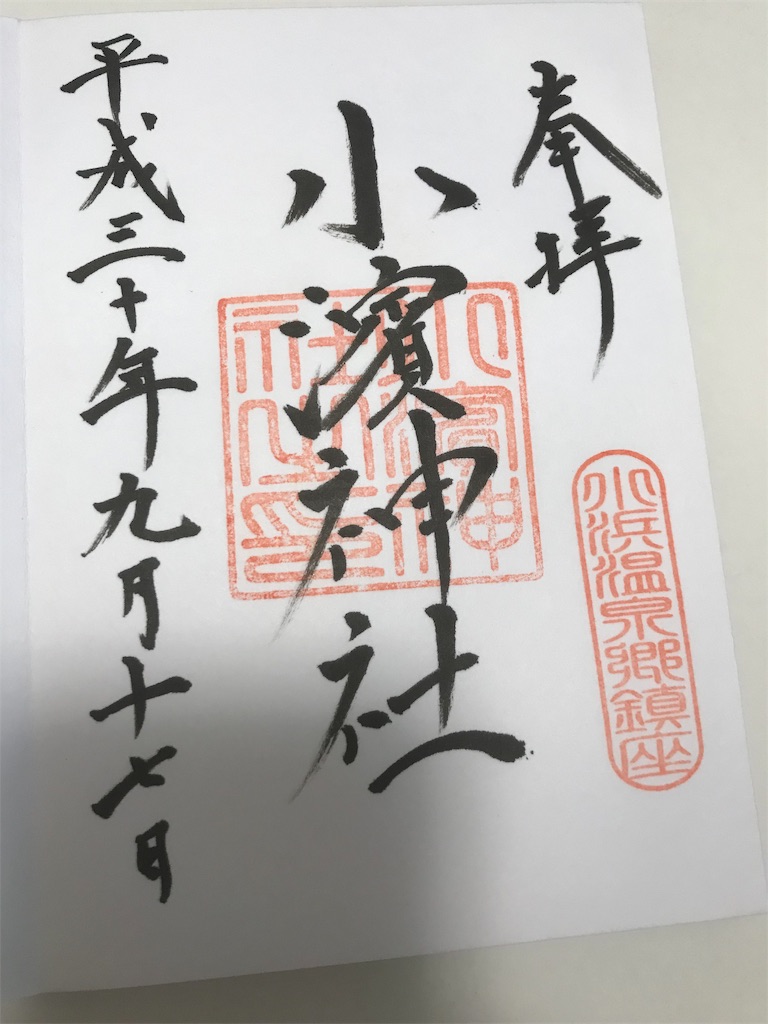 奉拝
小浜温泉郷鎮座
小濱神社
小濱神社之印
平成三十年九月十七日